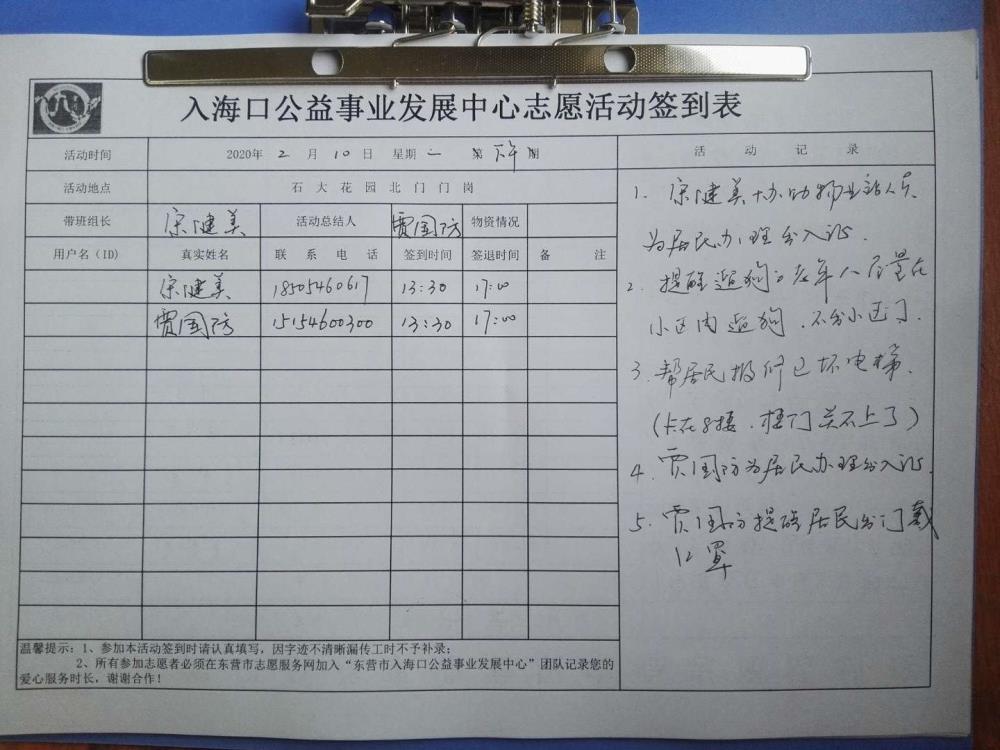 入海口公益事业发展中心志愿活动签到表
活动时间 2020年 2 月 10 日 星期 一 第 下午 期
活动地点 石大花园北门门岗
带班组长 宋健美 活动总结人 贾国防 物资情况
用户名(ID) 真实姓名 联系电话 签到时间 签退时间 备注
宋健美 18505460617 13:30 17:00
贾国防 15154600300 13:30 17:00
温馨提示:1、参加本活动签到时请认真填写,因字迹不清晰漏传工时不予补录;
2、所有参加志愿者必须在东营市志愿服务网加入“东营市入海口公益事业发展中心”团队记录您的
爱心服务时长,谢谢合作!
活动记录
1. 宋健美协助物业站人员
为居民办理出入证.
2. 提醒遛狗的老年人尽量在
小区内遛狗.不出小区门.
3. 帮居民报修已坏电梯.
(卡在8楼.梯门关不上了)
4. 贾国防为居民办理出入证.
5. 贾国防提醒居民出门戴
口罩